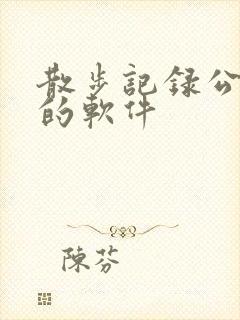 散步記録公
的軟件
陳芬